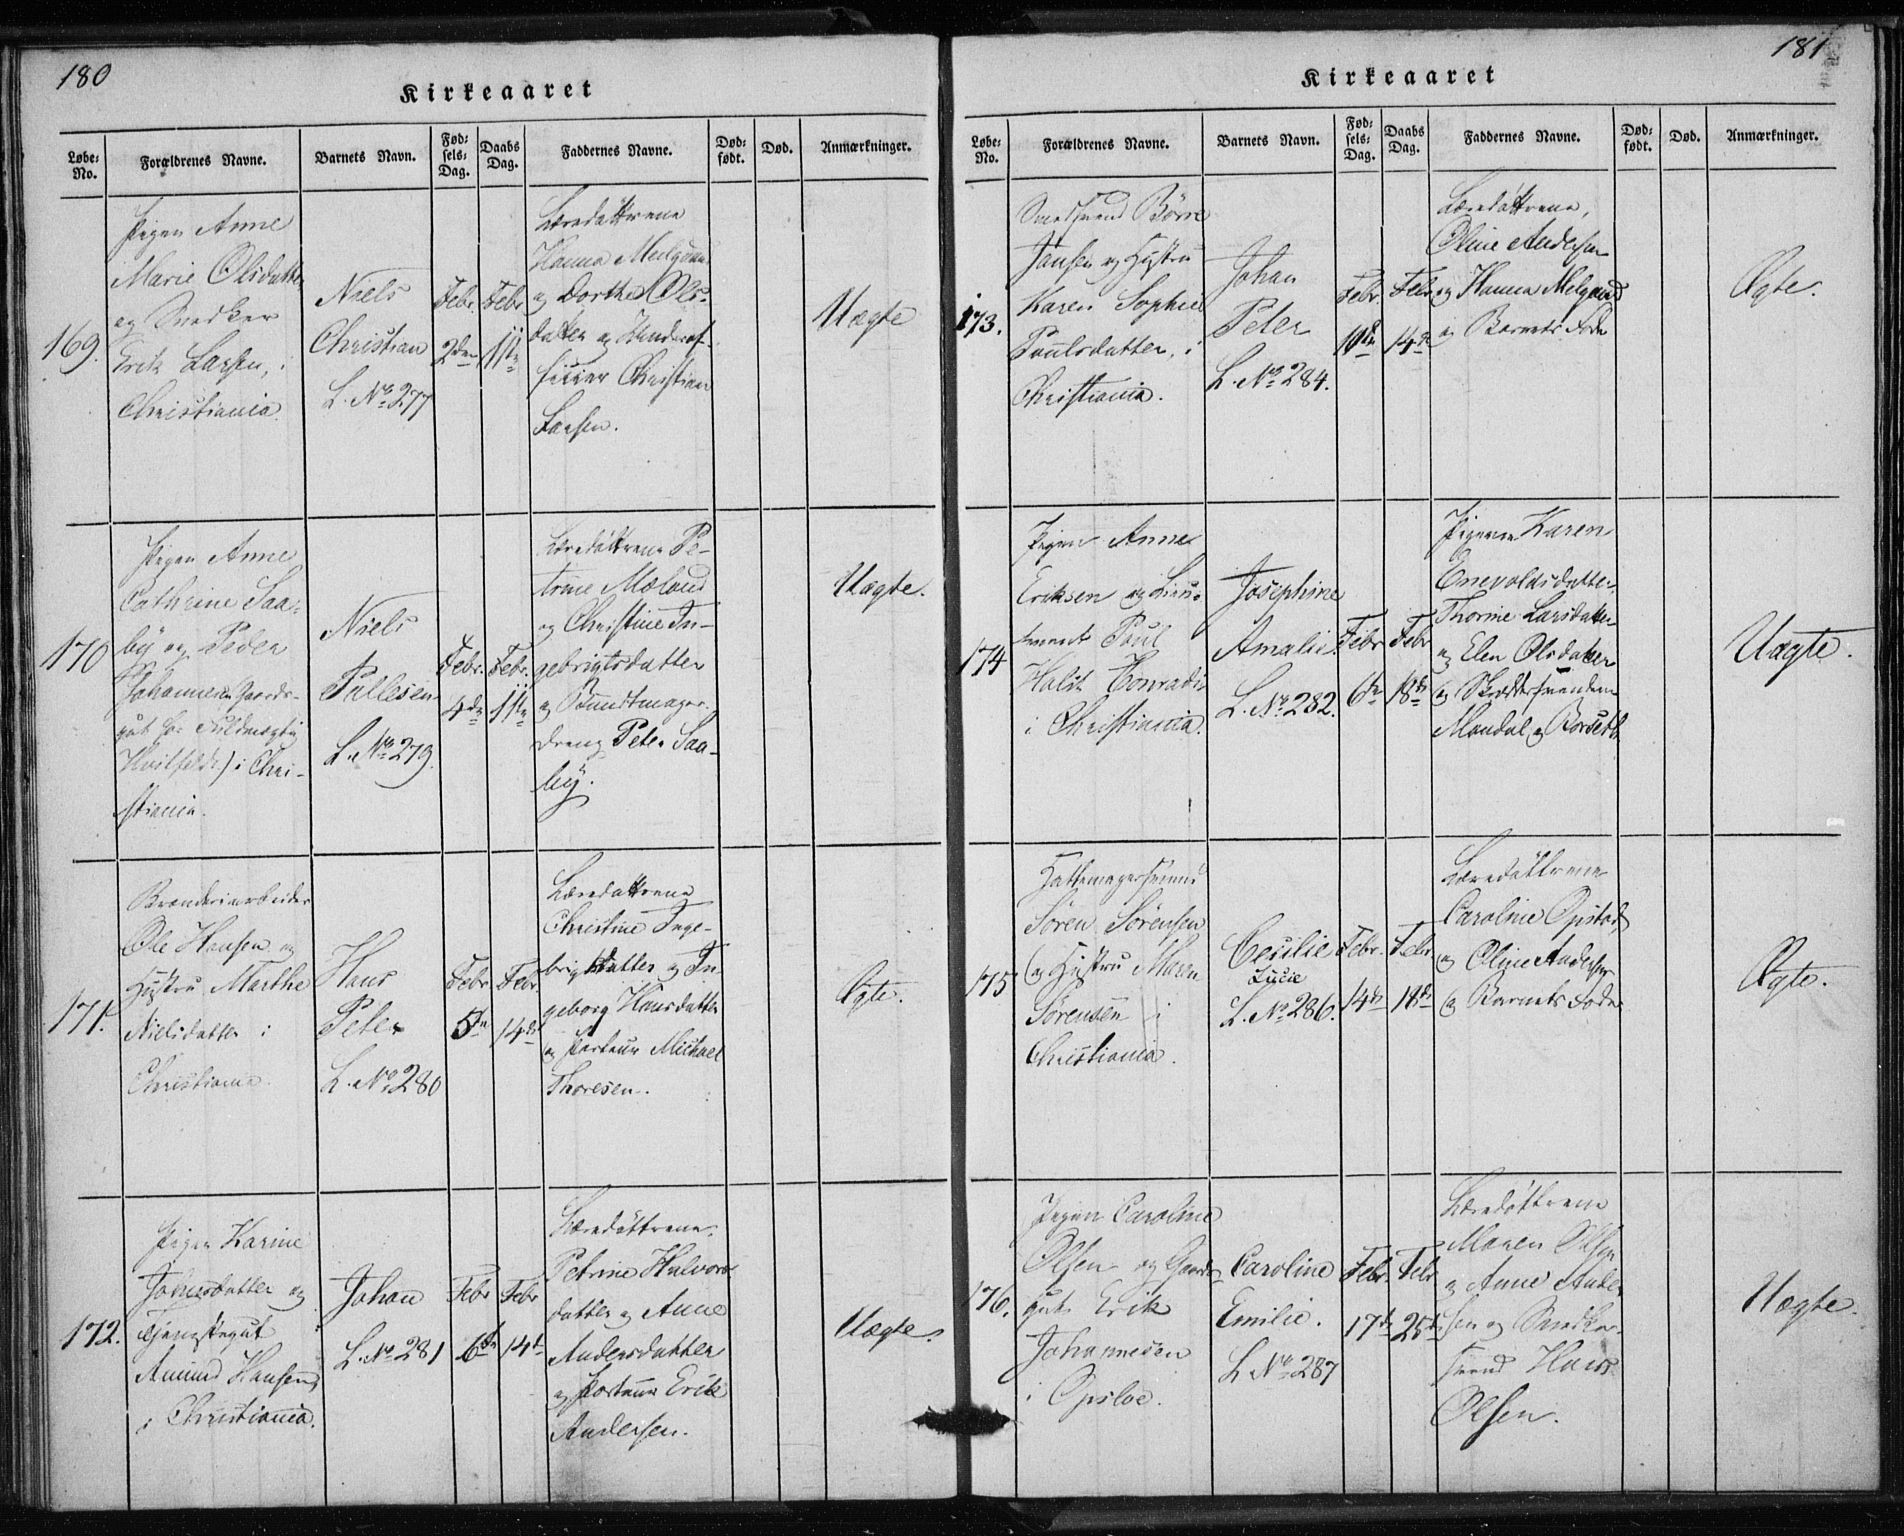 180
Kirkeaaret
Løbe-No. Forældrenes Navne. Barnets Navn. Fødsels-Dag. Daabs Dag. Faddernes Navne. Dødfødt. Død. Anmærkninger.
169.
Pigen Anne
Marie Olsdatter
og Snedker
Erik Larsen, i
Christiania.
Niels
Christian
L. No 277
Febr.
2den
Febr.
11te
Læredøttrene
Hanna
og Dorthe Ols-
datter og Underof-
ficier Christian
Larsen.
Uægte
170
Pigen Anne
Cathrine Saa-
by og Peder
Johannesen Gaards-
gut hos Fuldmægtig
Hvitfeldt) i Chri-
stiania.
Niels
Pallesen
L. No 279.
Febr.
4de
Febr.
11te
Læredøttrene Pe-
trine Mæland
og Christine In-
gebrigtsdatter
og Buntmager-
dreng Peter Saa-
by.
Uægte.
171.
Brænderiarbeider
Ole Hansen og
Hystru Marthe
Nielsdatter i
Christiania.
Hans
Peter
L. No 280
Febr
5te
Febr.
14de
Læredøttrene
Christine Inge-
brigtsdatter og In-
geborg Hansdatter
og Porteur Michael
Thoresen.
Ægte.
172.
Pigen Karine
Johnsdatter og
Tjenestegut
Amund Hansen,
i Christiania.
Johan
L. No 281
Febr
6te
Febr
14de
Læredøttrene,
Petrine Halvors-
datter og Anne
Andersdatter
og Porteur Erik
Andersen.
Uægte.
181
Kirkeaaret
Løbe-No. Forældrenes Navne. Barnets Navn. Fødsels-Dag. Daabs Dag. Faddernes Navne. Dødfødt. Død. Anmærkninger.
173.
Smedsvend Børre
Jansen og Hystru
Karen Sophie
Poulsdatter, i
Christiania.
Johan
Peter
L. No 284.
Febr.
10de
Febr.
14de
Læredøttrene,
Oline Andersen
og Hanna Melgaard
og Barnets Fader
Ægte.
174
Pigen Anne
Eriksen og Lieu-
tenant Poul
Holst Conradi
i Christiania.
Josephine
Amalie
L. No 282.
Febr
6te
Febr
18de
Pigerne Karen
Enevoldsdatter,
Thorine Larsdatter
og Elen Olsdatter
og Skræddersvendene
Mandal og Borseth.
Uægte.
175
Hattemagersvend
Søren Sørensen
og Hystru Maren
Sørensen i
Christiania.
Cecilie
Lucie
L. No 286.
Febr.
14de
Febr.
18de
Læredøttrene
Caroline Opstad,
og Oline Andersen
og Barnets Fader
Ægte.
176.
Pigen Caroline
Olsen og Gaards-
gut Erik
Johannesen
i Opsloe.
Caroline
Emilie.
L No 287
Febr.
17de
Febr
25de
Læredøttrene
Maren Olsen
og Anne Ander-
sen og Snedker-
svend Hans
Olsen.
Uægte.